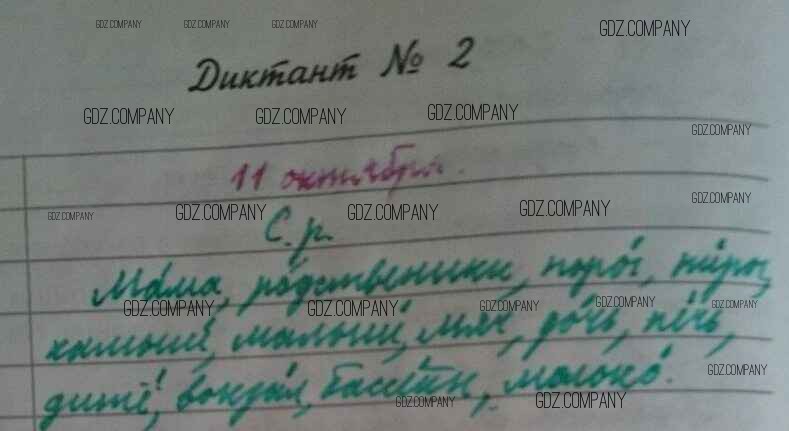 GDZ.COMPANY GDZ.COMPANY GDZ.COMPANY GDZ.COMPANY
Диктант № 2
GDZ.COMPANY GDZ.COMPANY GDZ.COMPANY GDZ.COMPANY
11 октября.
GDZ.COMPANY GDZ.COMPANY GDZ.COMPANY GDZ.COMPANY GDZ.COMPANY
С.р.
Ма́ма, ро́дственники,
GDZ.COMPANY GDZ.COMPANY GDZ.COMPANY GDZ.COMPANY GDZ.COMPANY
камыши́, малыши́, мяч, пе́чь,
GDZ.COMPANY
дитё, вокза́л, бассе́йн, молоко́.
GDZ.COMPANY GDZ.COMPANY